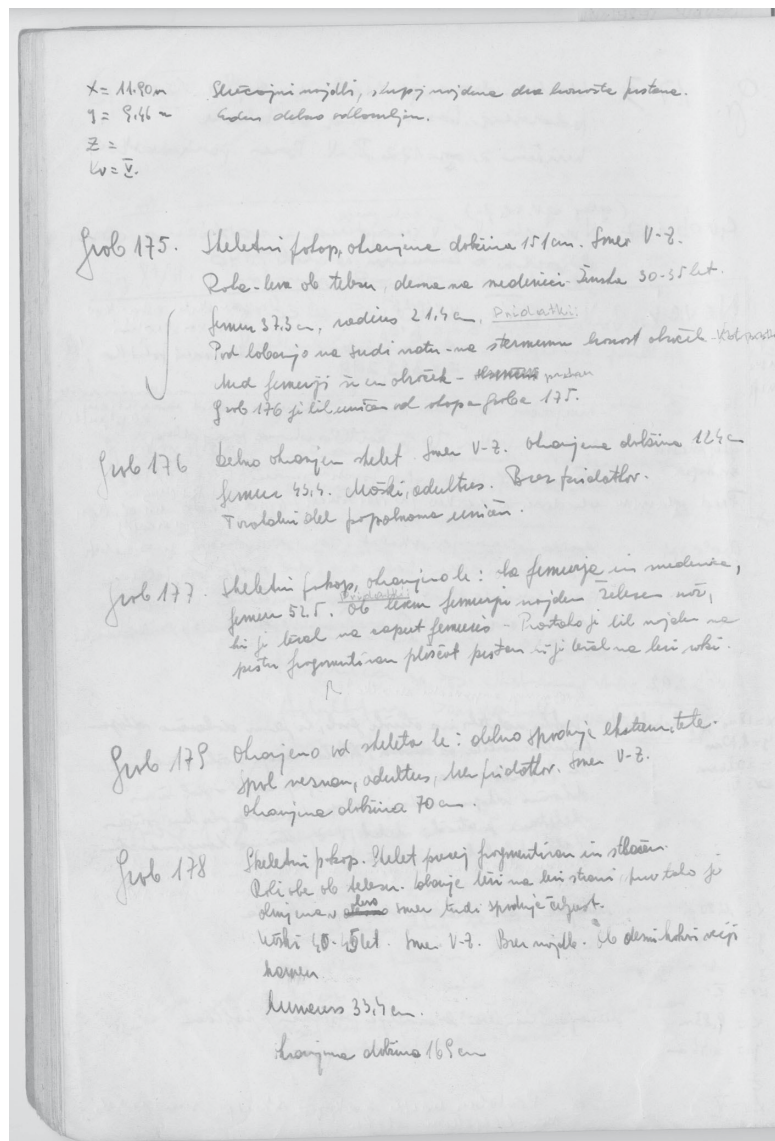 X = 11.90 m Slučajni najdbi, skupaj najdena dva bronasta prstana.
y = 9,46 m Eden delno odlomljen.
Z =
Kv = V.
Grob 175. Skeletni pokop, ohranjena dolžina 151 cm. Smer V-Z.
Roka - leva ob telesu, desna na medenici. Ženska 30-35 let.
femur 37,3 cm, radius 21,4 cm. Pridatki:
Pod lobanjo na sredi - na bronast obroček -
Med femurji še en obroček - prstan
Grob 176 je bil uničen od vkopa groba 175.
Grob 176 Delno ohranjen skelet. Smer V-Z. Ohranjena dolžina 124 cm
femur 43,4. Moški, adultus. Brez pridatkov.
del popolnoma uničen.
Grob 177. Skeletni pokop, ohranjeno le: oba femurja in medenica,
femur 52,5. Pridatki: Ob levem femurju najden železen nož,
ki je ležal na caput femuris - Prav tako je bil najden na
prstu fragmentiran ploščat prstan ležal na levi roki.
Grob 179 Ohranjeno od skeleta le: delno spodnje ekstremitete.
Spol neznan, adultus, brez pridatkov. Smer V-Z.
Ohranjena dolžina 70 cm.
Grob 178 Skeletni pokop. Skelet precej fragmentiran in stlačen.
Roki obe ob telesu. Lobanja leži na levi strani, prav tako je
obrnjena v levo smer tudi spodnja čeljust.
Moški 40-45 let. Smer V-Z. Brez najdb. Ob desni večji
kamen.
Humerus 33,4 cm.
Ohranjena dolžina 169 cm